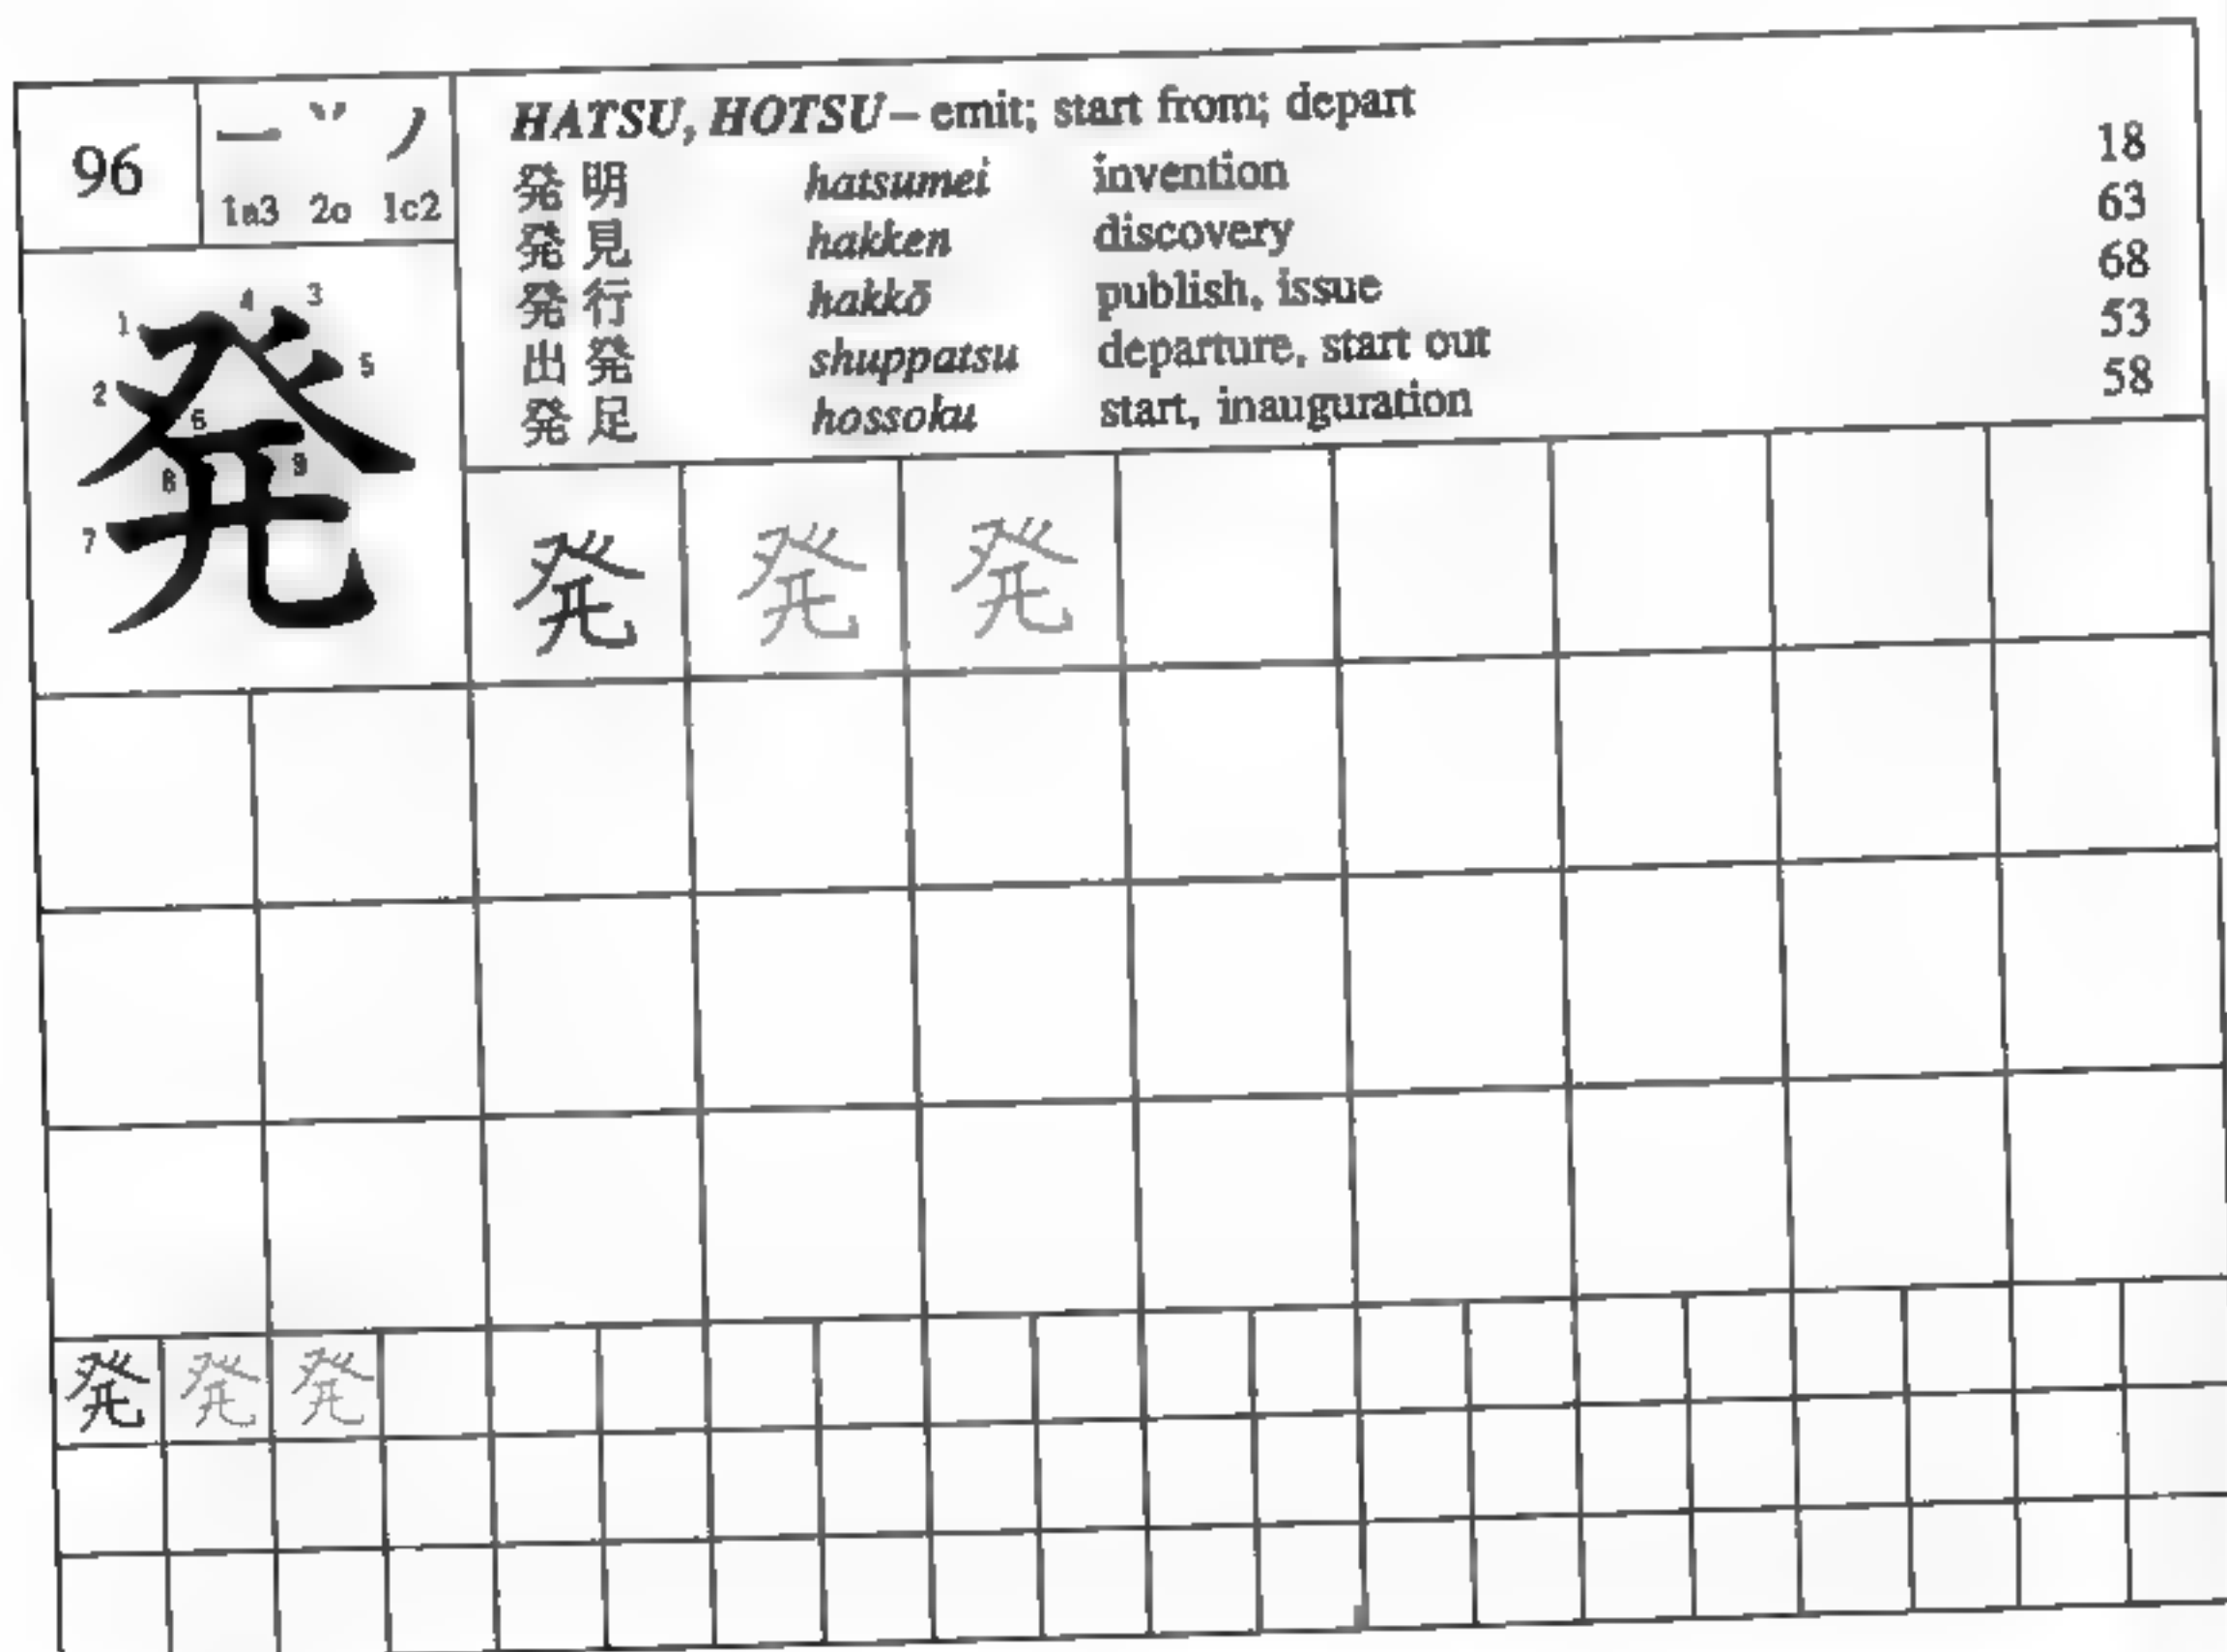 96
一 丷 ノ
1a3 2o 1c2
HATSU, HOTSU – emit; start from; depart
発明 hatsumei invention 18
発見 hakken discovery 63
発行 hakkō publish, issue 68
出発 shuppatsu departure, start out 53
発足 hossoku start, inauguration 58
発
1 2 3 4 5 6 7 8 9
発 発 発
発 発 発